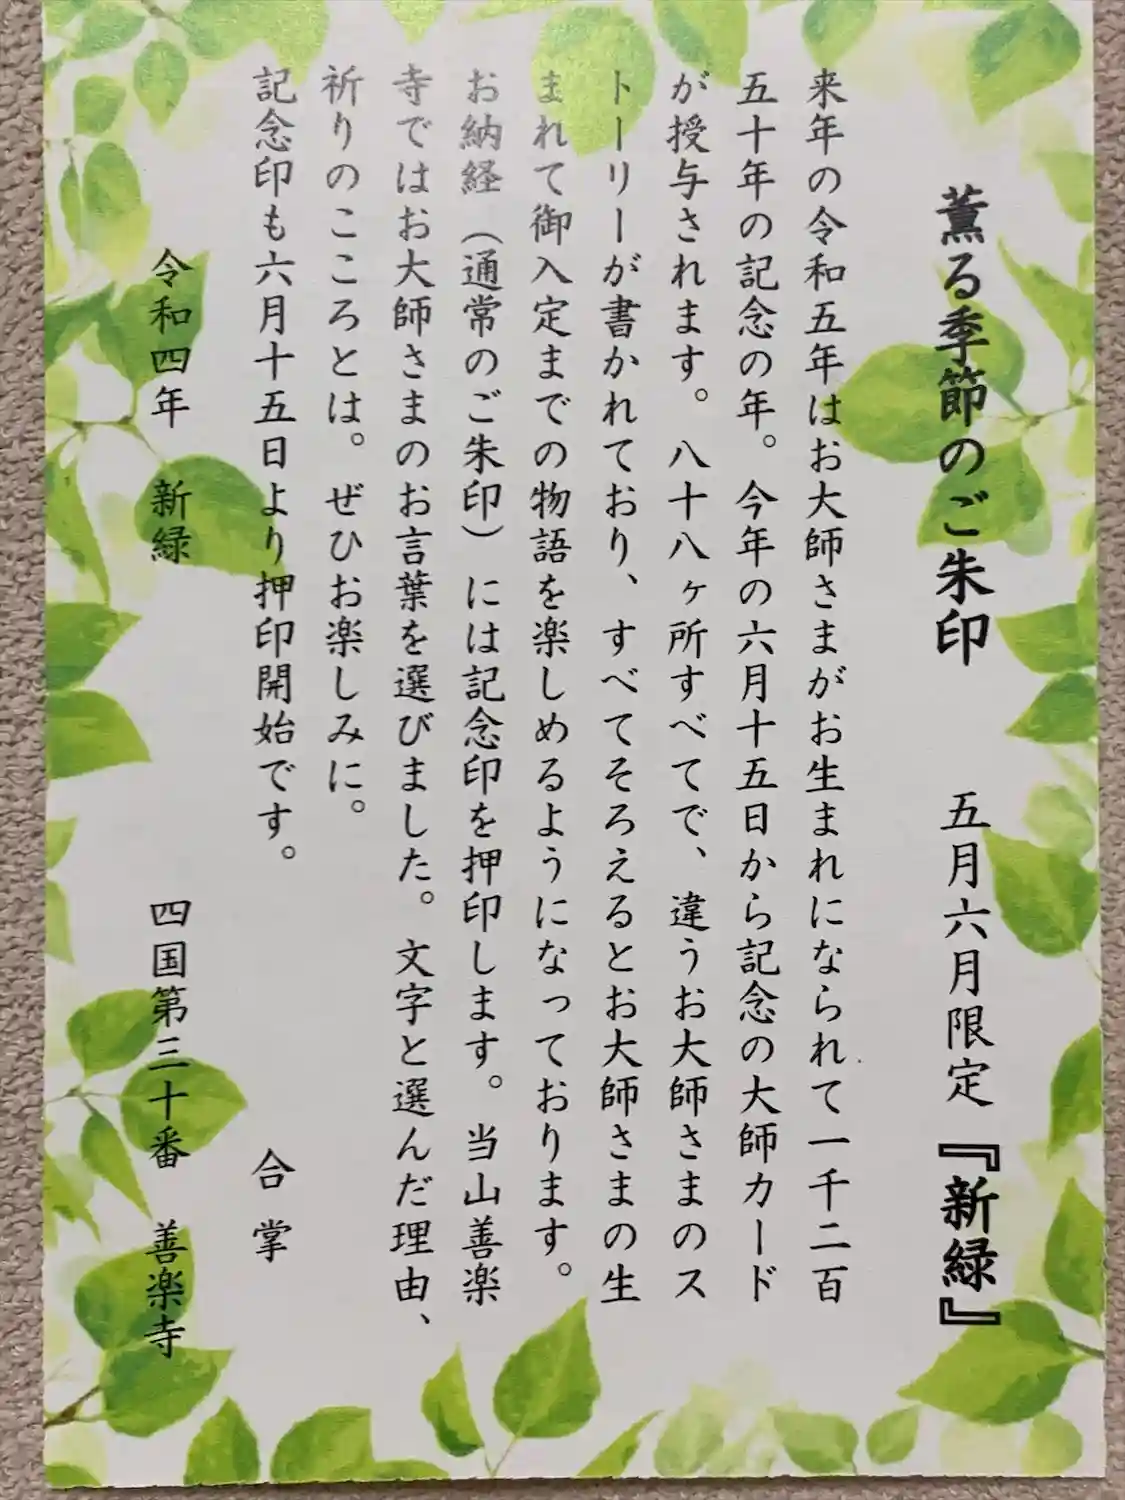 薫る季節のご朱印　五月六月限定『新緑』
来年の令和五年はお大師さまがお生まれになられて一千二百
五十年の記念の年。今年の六月十五日から記念の大師カード
が授与されます。八十八ヶ所すべてで、違うお大師さまのス
トーリーが書かれており、すべてそろえるとお大師さまの生
まれて御入定までの物語を楽しめるようになっております。
お納経（通常のご朱印）には記念印を押印します。当山善楽
寺ではお大師さまのお言葉を選びました。文字と選んだ理由、
祈りのこころとは。ぜひお楽しみに。
記念印も六月十五日より押印開始です。
合掌
令和四年　新緑　四国第三十番　善楽寺